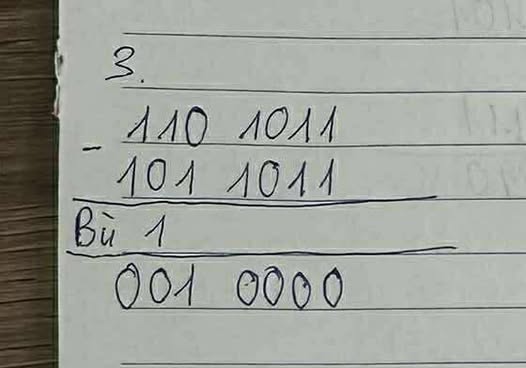 3.
110 1011
-
101 1011
Bù 1
001 0000